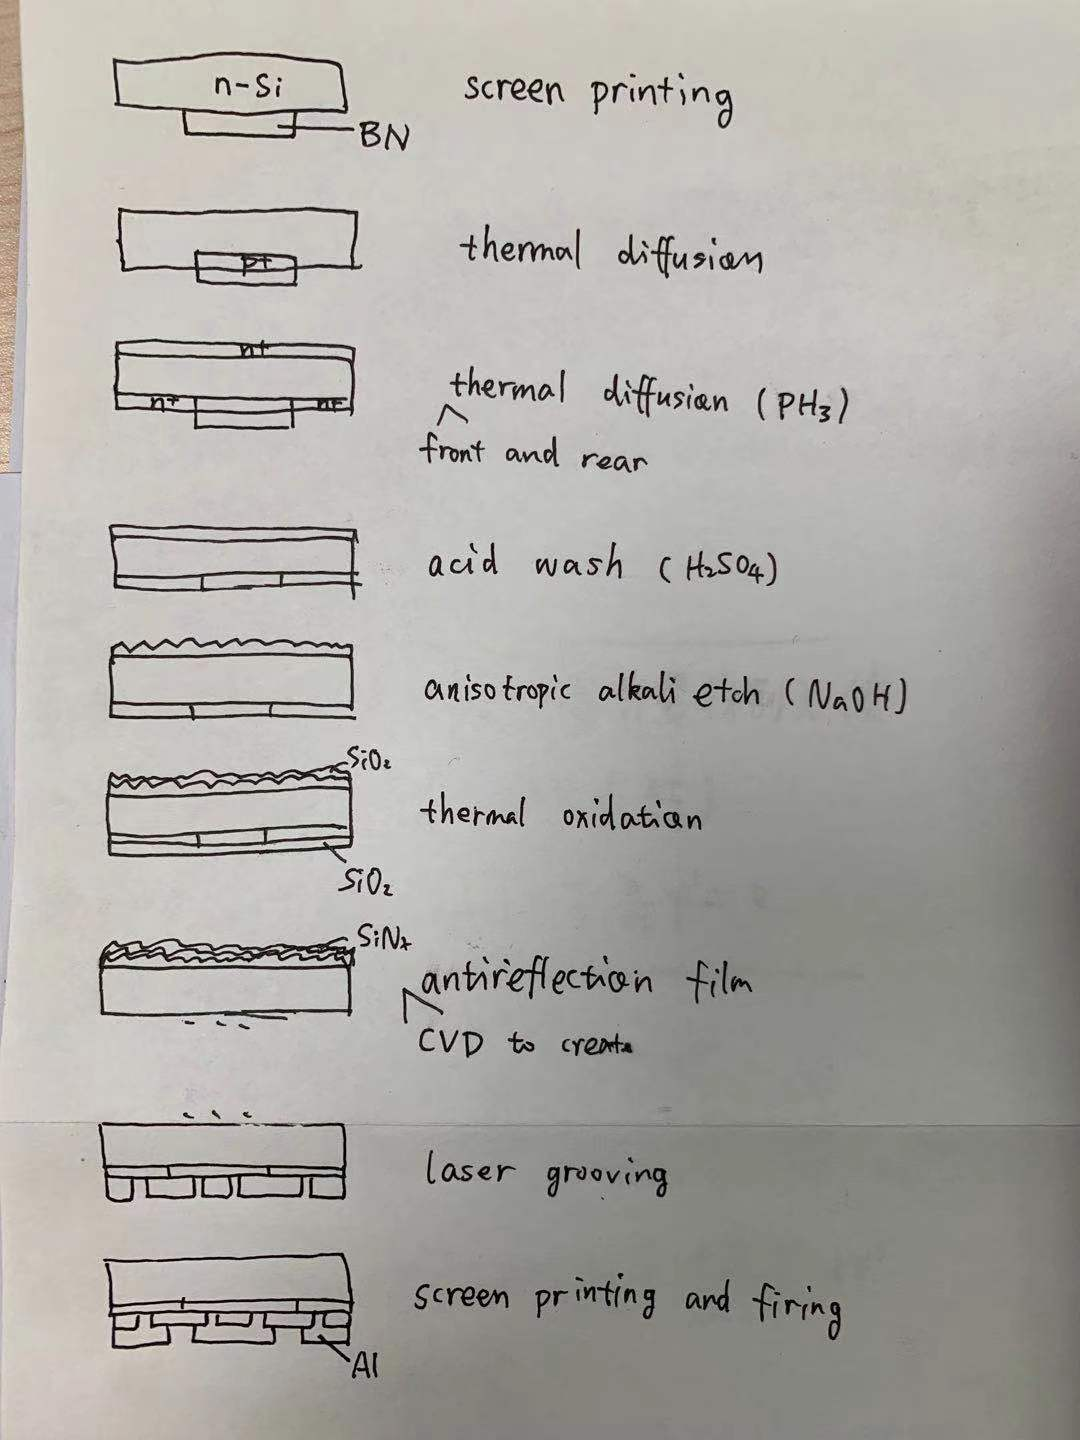 n-Si
screen printing
BN
p+
thermal diffusion
n+
n+ n+
thermal diffusion (PH3)
front and rear
acid wash (H2SO4)
anisotropic alkali etch (NaOH)
SiO2
thermal oxidation
SiO2
SiNx
antireflection film
CVD to create
laser grooving
screen printing and firing
Al